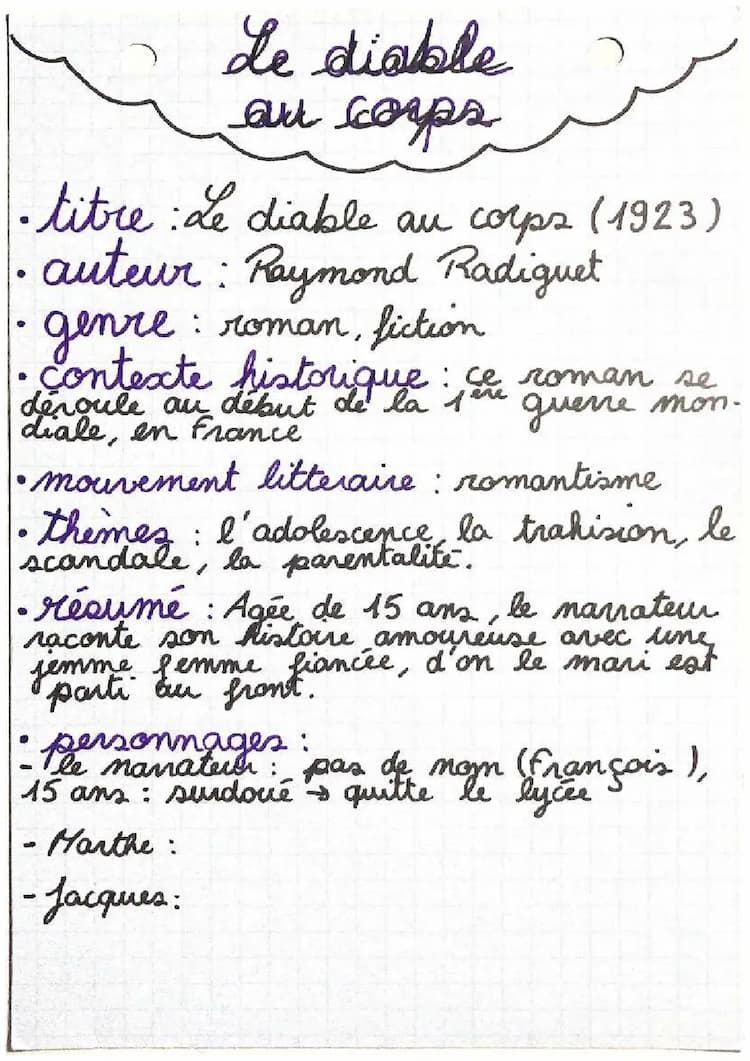 Le diable
au corps
• titre : Le diable au corps (1923)
• auteur : Raymond Radiguet
• genre : roman, fiction
• contexte historique : ce roman se
déroule au début de la 1ère guerre mon-
diale, en France
• mouvement litteraire : romantisme
• thèmes : l'adolescence, la trahision, le
scandale, la parentalité.
• résumé : Agée de 15 ans, le narrateur
raconte son histoire amoureuse avec une
jemme femme fiancée, d'on le mari est
parti au front.
• personnages :
- le narrateur : pas de nom (François),
15 ans : surdoué → quitte le lycée
- Marthe :
- Jacques :